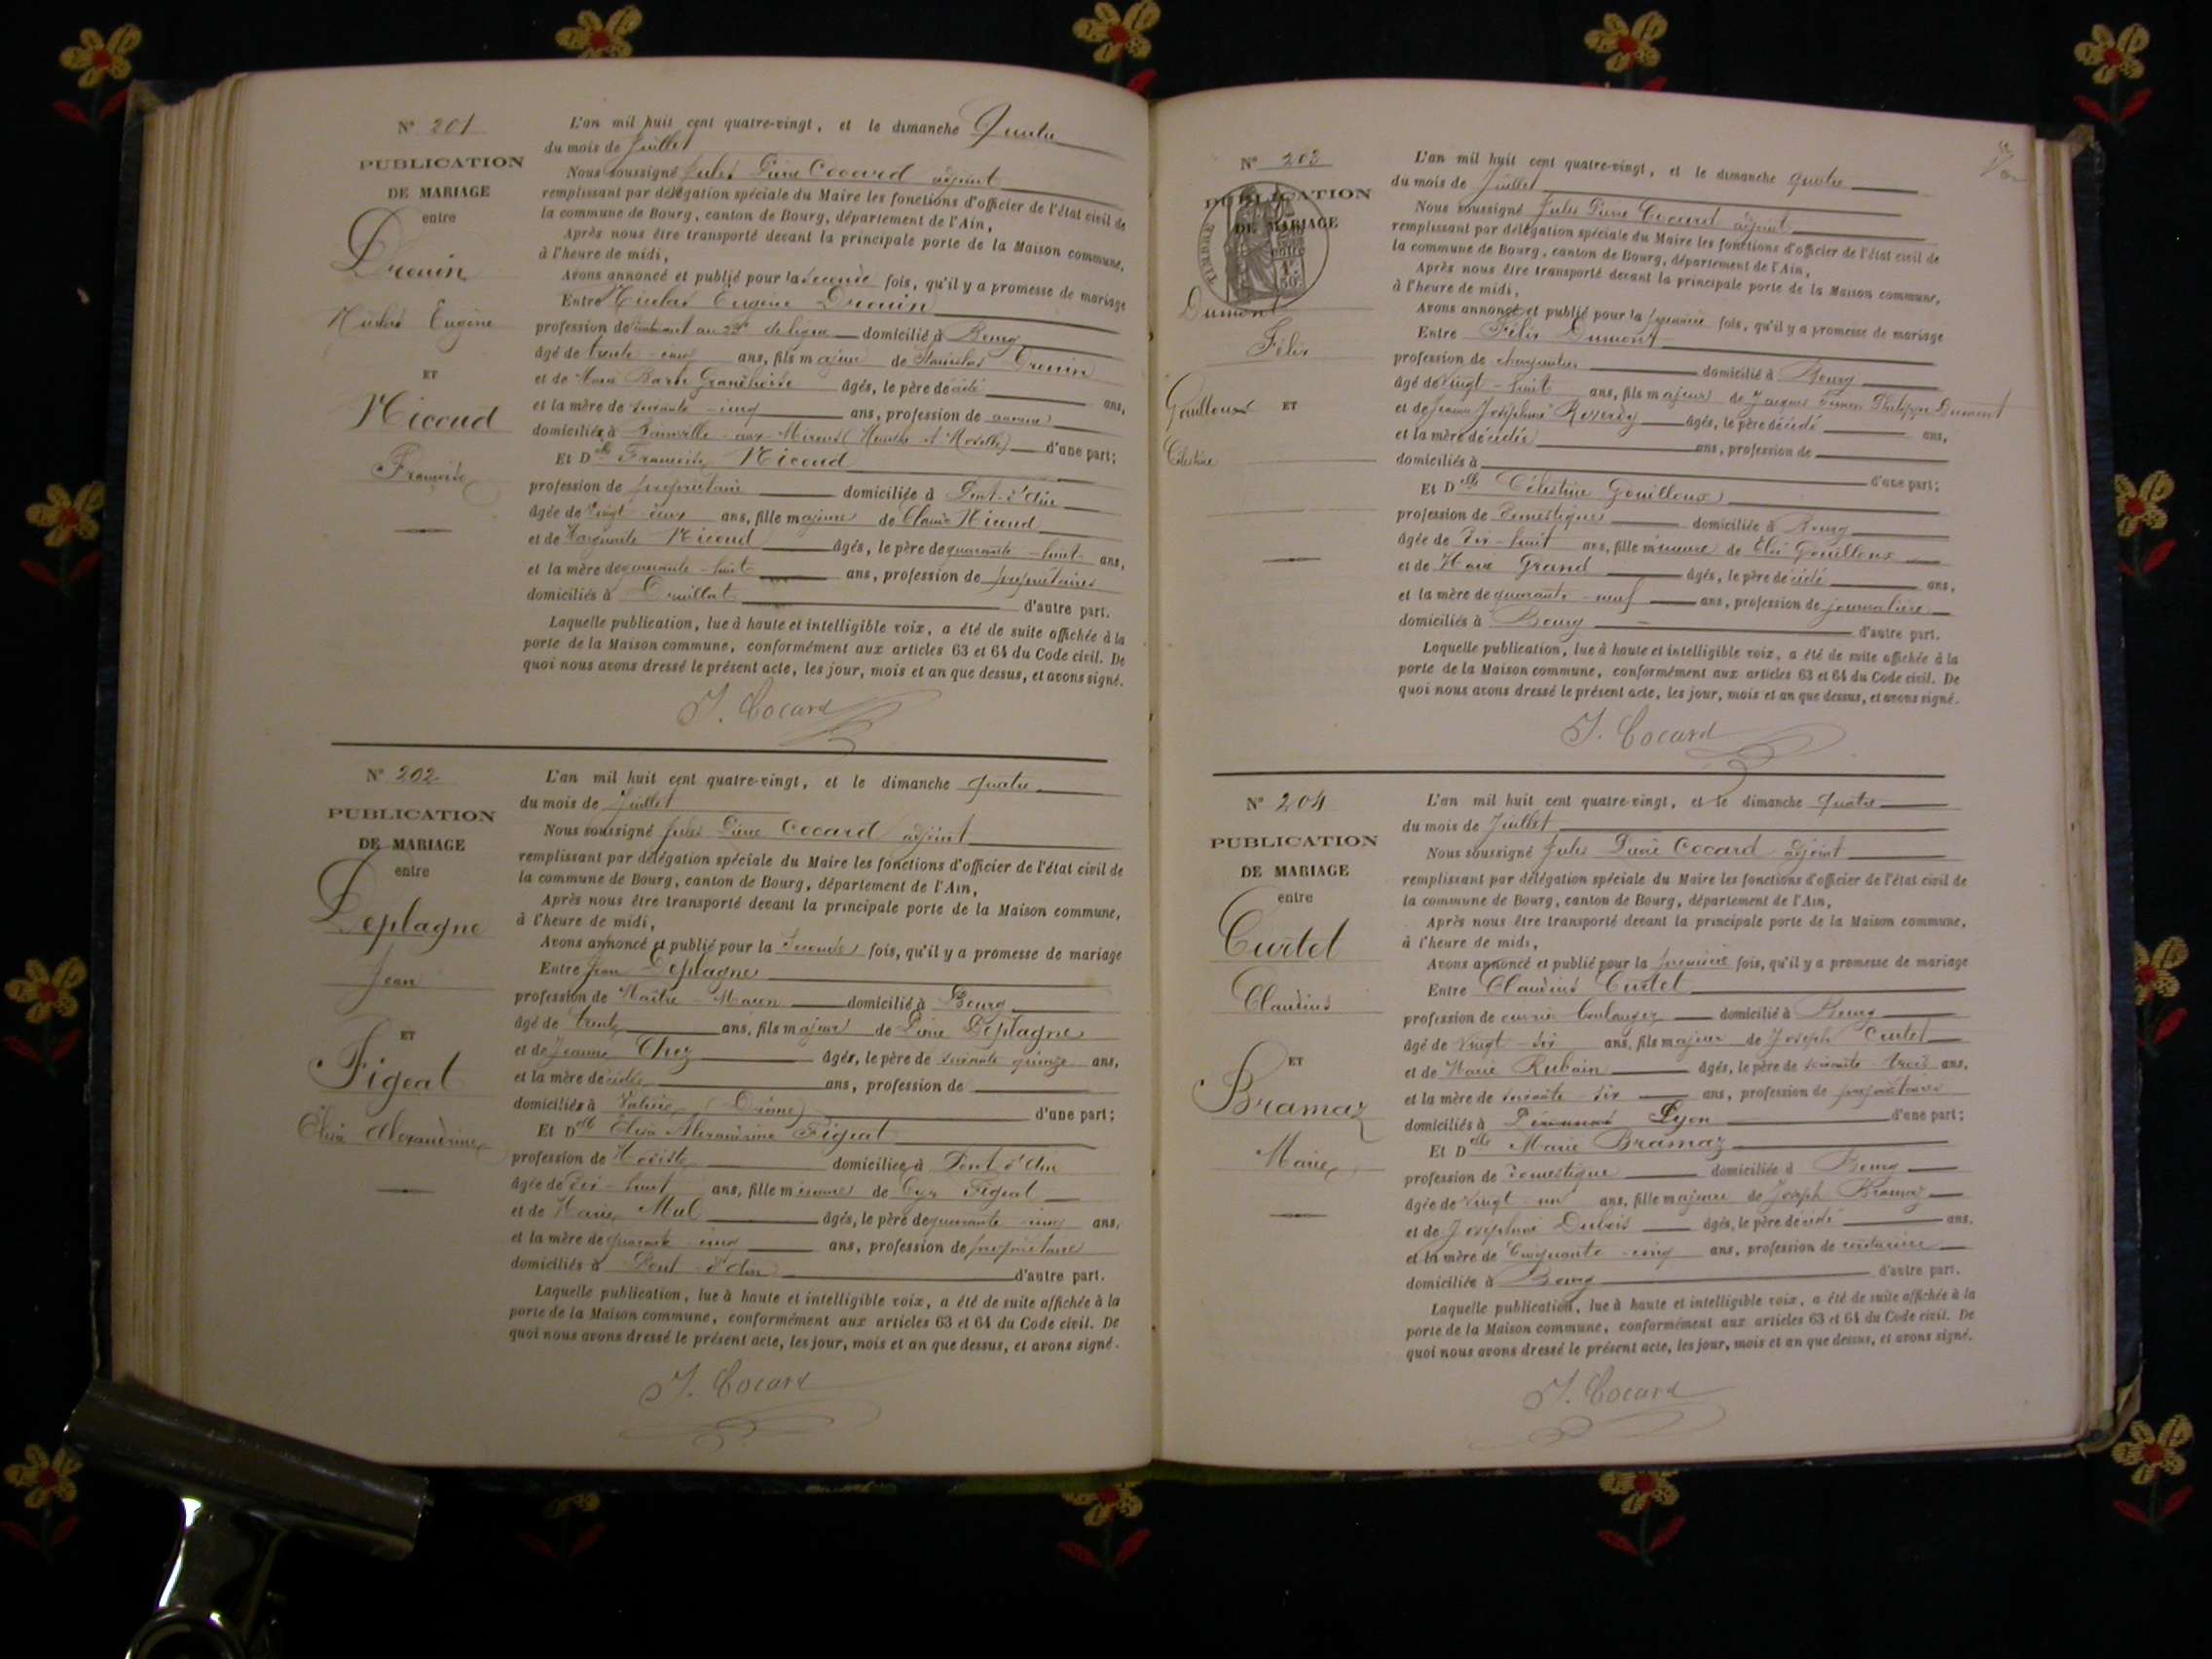 Nº 201
PUBLICATION
DE MARIAGE
entre
Drouin
Nicolas Eugène
ET
Nicoud
Françoise
L'an mil huit cent quatre-vingt, et le dimanche Quatre
du mois de Juillet
Nous soussigné Jules Pierre Cocard adjoint
remplissant par délégation spéciale du Maire les fonctions d'officier de l'état civil de
la commune de Bourg, canton de Bourg, département de l'Ain,
Après nous être transporté devant la principale porte de la Maison commune,
à l'heure de midi,
Avons annoncé et publié pour la seconde fois, qu'il y a promesse de mariage
Entre Nicolas Eugène Drouin
profession de au 23e de ligne domicilié à Bourg
âgé de trente-cinq ans, fils majeur de Stanislas Drouin
et de Barbe âgés, le père décédé ans,
et la mère de soixante-cinq ans, profession de
domiciliés à aux-Miroirs (Meurthe et Moselle) d'une part;
Et Dlle Françoise Nicoud
profession de propriétaire domiciliée à Pont-d'Ain
âgée de vingt-deux ans, fille majeure de Claude Nicoud
et de Marguerite Nicoud âgés, le père de quarante-huit ans,
et la mère de quarante-huit ans, profession de propriétaires
domiciliés à Druillat d'autre part.
Laquelle publication, lue à haute et intelligible voix, a été de suite affichée à la
porte de la Maison commune, conformément aux articles 63 et 64 du Code civil. De
quoi nous avons dressé le présent acte, les jour, mois et an que dessus, et avons signé.
J. Cocard
Nº 202
PUBLICATION
DE MARIAGE
entre
Deplagne
Jean
ET
Figeat
Elisa Alexandrine
L'an mil huit cent quatre-vingt, et le dimanche quatre
du mois de Juillet
Nous soussigné Jules Pierre Cocard adjoint
remplissant par délégation spéciale du Maire les fonctions d'officier de l'état civil de
la commune de Bourg, canton de Bourg, département de l'Ain,
Après nous être transporté devant la principale porte de la Maison commune,
à l'heure de midi,
Avons annoncé et publié pour la seconde fois, qu'il y a promesse de mariage
Entre Jean Deplagne
profession de Maître-Maçon domicilié à Bourg
âgé de trente ans, fils majeur de Pierre Deplagne
et de Jeanne Chez âgés, le père de soixante quinze ans,
et la mère décédée ans, profession de
domiciliés à (Drôme) d'une part;
Et Dlle Elisa Alexandrine Figeat
profession de Modiste domiciliée à Pont d'Ain
âgée de dix-huit ans, fille mineure de Cyr Figeat
et de Marie Mul âgés, le père de quarante-cinq ans,
et la mère de quarante-cinq ans, profession de propriétaires
domiciliés à Pont-d'Ain d'autre part.
Laquelle publication, lue à haute et intelligible voix, a été de suite affichée à la
porte de la Maison commune, conformément aux articles 63 et 64 du Code civil. De
quoi nous avons dressé le présent acte, les jour, mois et an que dessus, et avons signé.
J. Cocard
Nº 203
PUBLICATION
DE MARIAGE
entre
TIMBRE
1F
50c
Dumont
Félix
ET
Gouilloux
Célestine
L'an mil huit cent quatre-vingt, et le dimanche quatre
du mois de Juillet
Nous soussigné Jules Pierre Cocard adjoint
remplissant par délégation spéciale du Maire les fonctions d'officier de l'état civil de
la commune de Bourg, canton de Bourg, département de l'Ain,
Après nous être transporté devant la principale porte de la Maison commune,
à l'heure de midi,
Avons annoncé et publié pour la première fois, qu'il y a promesse de mariage
Entre Félix Dumont
profession de charpentier domicilié à Bourg
âgé de vingt-huit ans, fils majeur de Jacques Philippe Dumont
et de Jeanne Joséphine âgés, le père décédé ans,
et la mère décédée ans, profession de
domiciliés à d'une part;
Et Dlle Célestine Gouilloux
profession de domestique domiciliée à Bourg
âgée de dix-huit ans, fille mineure de Gouilloux
et de Marie Grand âgés, le père décédé ans,
et la mère de quarante-neuf ans, profession de journalière
domiciliés à Bourg d'autre part.
Laquelle publication, lue à haute et intelligible voix, a été de suite affichée à la
porte de la Maison commune, conformément aux articles 63 et 64 du Code civil. De
quoi nous avons dressé le présent acte, les jour, mois et an que dessus, et avons signé.
J. Cocard
Nº 204
PUBLICATION
DE MARIAGE
entre
Curtet
Claudius
ET
Bramaz
Marie
L'an mil huit cent quatre-vingt, et le dimanche quatre
du mois de Juillet
Nous soussigné Jules Pierre Cocard adjoint
remplissant par délégation spéciale du Maire les fonctions d'officier de l'état civil de
la commune de Bourg, canton de Bourg, département de l'Ain,
Après nous être transporté devant la principale porte de la Maison commune,
à l'heure de midi,
Avons annoncé et publié pour la première fois, qu'il y a promesse de mariage
Entre Claudius Curtet
profession de ouvrier boulanger domicilié à Bourg
âgé de vingt-six ans, fils majeur de Joseph Curtet
et de Marie Rubain âgés, le père de soixante-trois ans,
et la mère de soixante-dix ans, profession de propriétaires
domiciliés à Lyon d'une part;
Et Dlle Marie Bramaz
profession de domestique domiciliée à Bourg
âgée de vingt-un ans, fille majeure de Joseph Bramaz
et de Joséphine Dubois âgés, le père décédé ans,
et la mère de Cinquante-cinq ans, profession de couturière
domiciliée à Bourg d'autre part.
Laquelle publication, lue à haute et intelligible voix, a été de suite affichée à la
porte de la Maison commune, conformément aux articles 63 et 64 du Code civil. De
quoi nous avons dressé le présent acte, les jour, mois et an que dessus, et avons signé.
J. Cocard